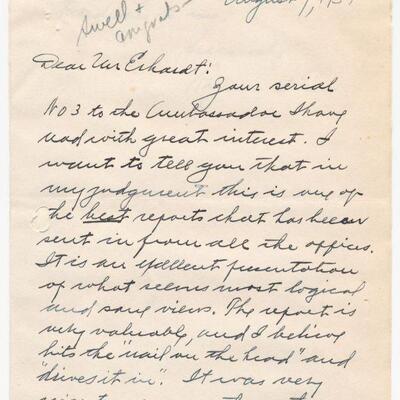 August
Swell +
congrats—
Dear Mr Erhardt:
Your serial
No 3 to the Ambassador I have
read with great interest. I
want to tell you that in
my judgment this is one of
the best reports that has been
sent in from all the offices.
It is an excellent presentation
of what seems most logical
and sane views. The report is
very valuable, and I believe
hits the "nail on the head" and
"drives it in". It was very